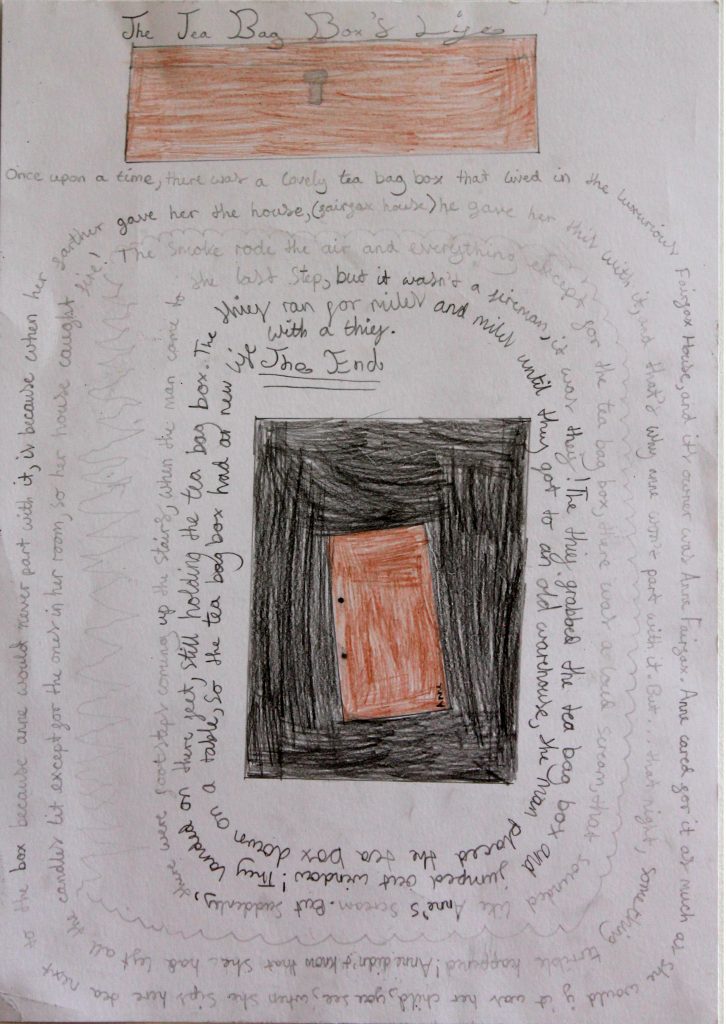 The Tea Bag Box's Life
Once upon a time, there was a lovely tea bag box that lived in the luxurious
Fairfax House, and it's owner was Anne Fairfax. Anne cared for it as much as
she would if it was her child, you see, when she sips here tea next
to the box because anne would never part with it, is because when her farther
gave her the house, (fairfax house) he gave her this with it,
and that's why anne won't part with it. But... that night, something
terrible happend! Anne didn't know that she had left all the
candles lit except for the ones in her room, so her house caught fire!
The smoke rode the air and everything except for
the tea bag box, there was a loud scream, that sounded
like Anne's scream. But suddenly,
there were footsteps coming up the stairs, when the man come to
the last step, but it wasn't a fireman, it
was thief! The thief grabbed the tea bag box and
jumped out window! They landed
on there feet, still holding the tea bag box. The
thief ran for miles and miles until
they got to an old warehouse, the man
placed the tea box down on
a table, so the tea bag box had a new life
with a thief.
The End
ANNE